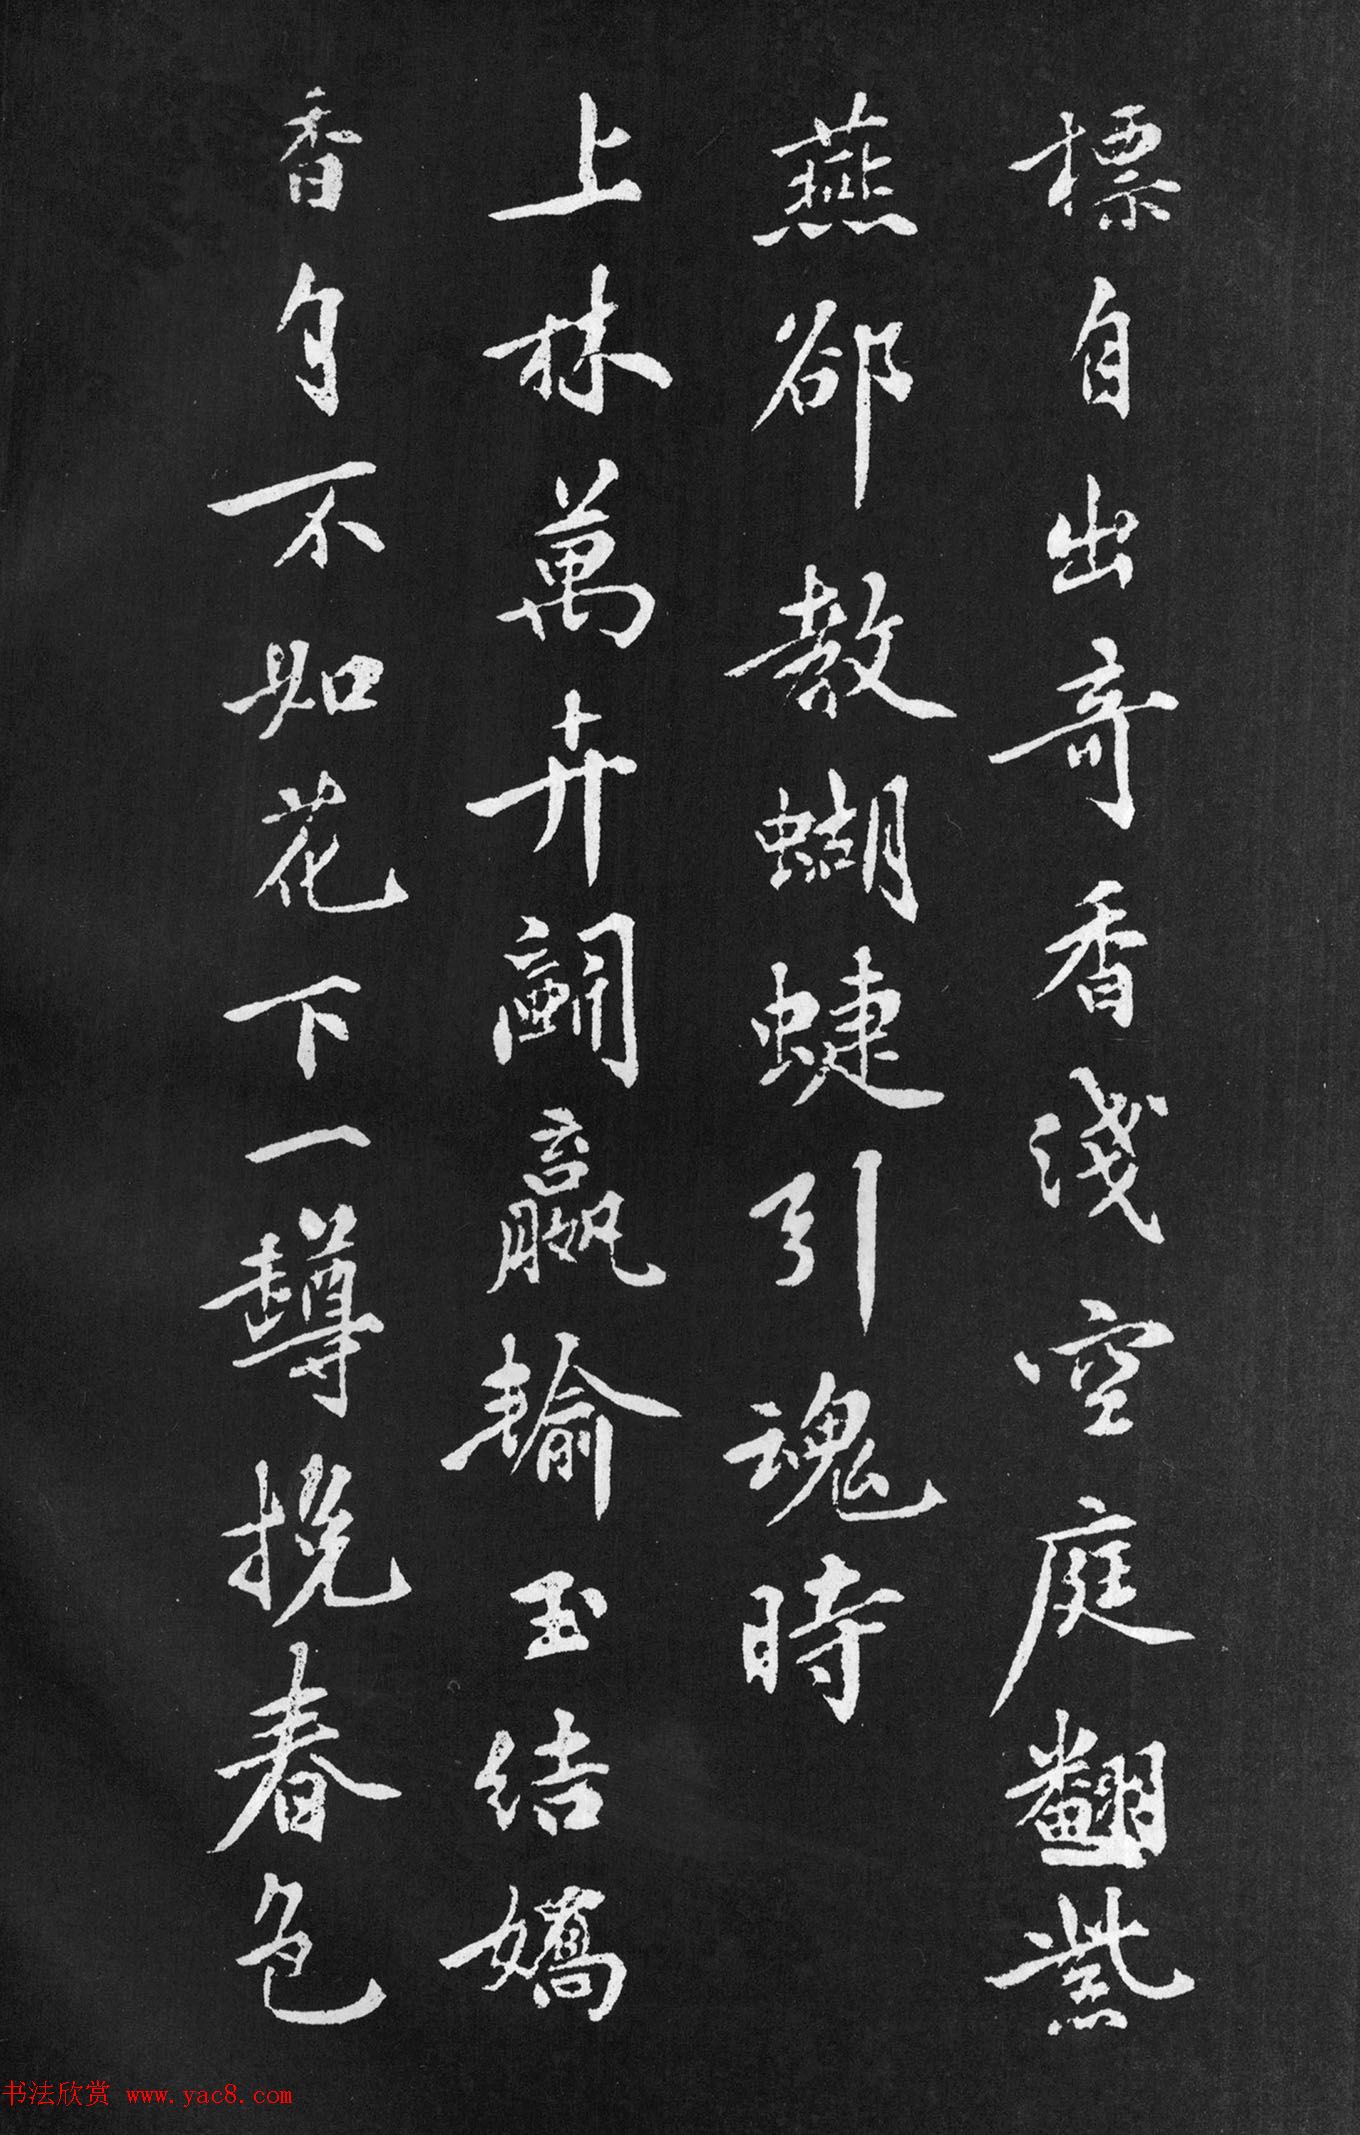 標自出奇香淺空庭翻紫
燕卻教蝴蜨引魂時
上林萬卉鬭嬴輸玉結嬌
香自不如花下一罇挽春色
书法欣赏 www.yac8.com